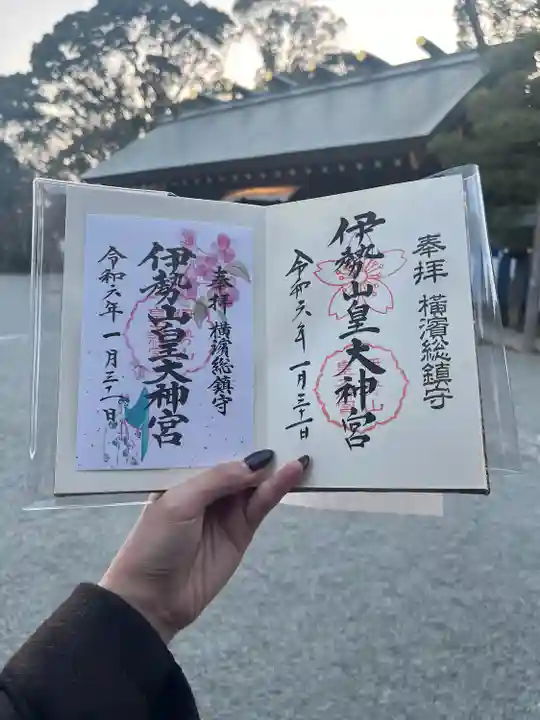 奉拝 横濱総鎮守
伊勢山皇大神宮
令和六年 一月三十一日
奉拝 横濱総鎮守
伊勢山皇大神宮
令和六年 一月三十一日